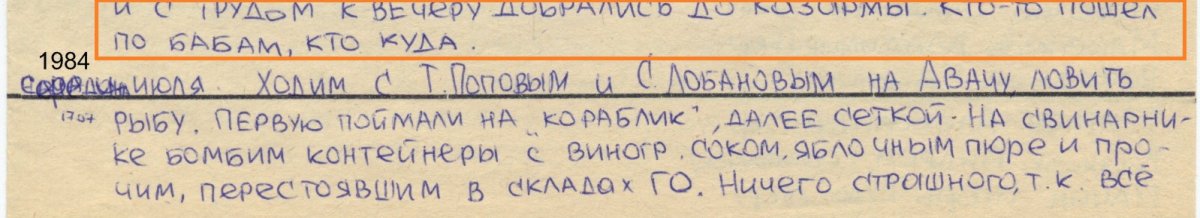 и с трудом к вечеру добрались до казармы. Кто-то пошёл
по бабам, кто куда.
1984
середина июля. Ходим с Т.Поповым и С.Лобановым на Авачу ловить
17.07 рыбу. Первую поймали на "кораблик", далее сеткой. На свинарни-
ке бомбим контейнеры с виногр. соком, яблочным пюре и про-
чим, перестоявшим в складах ГО. Ничего страшного, т.к. всё